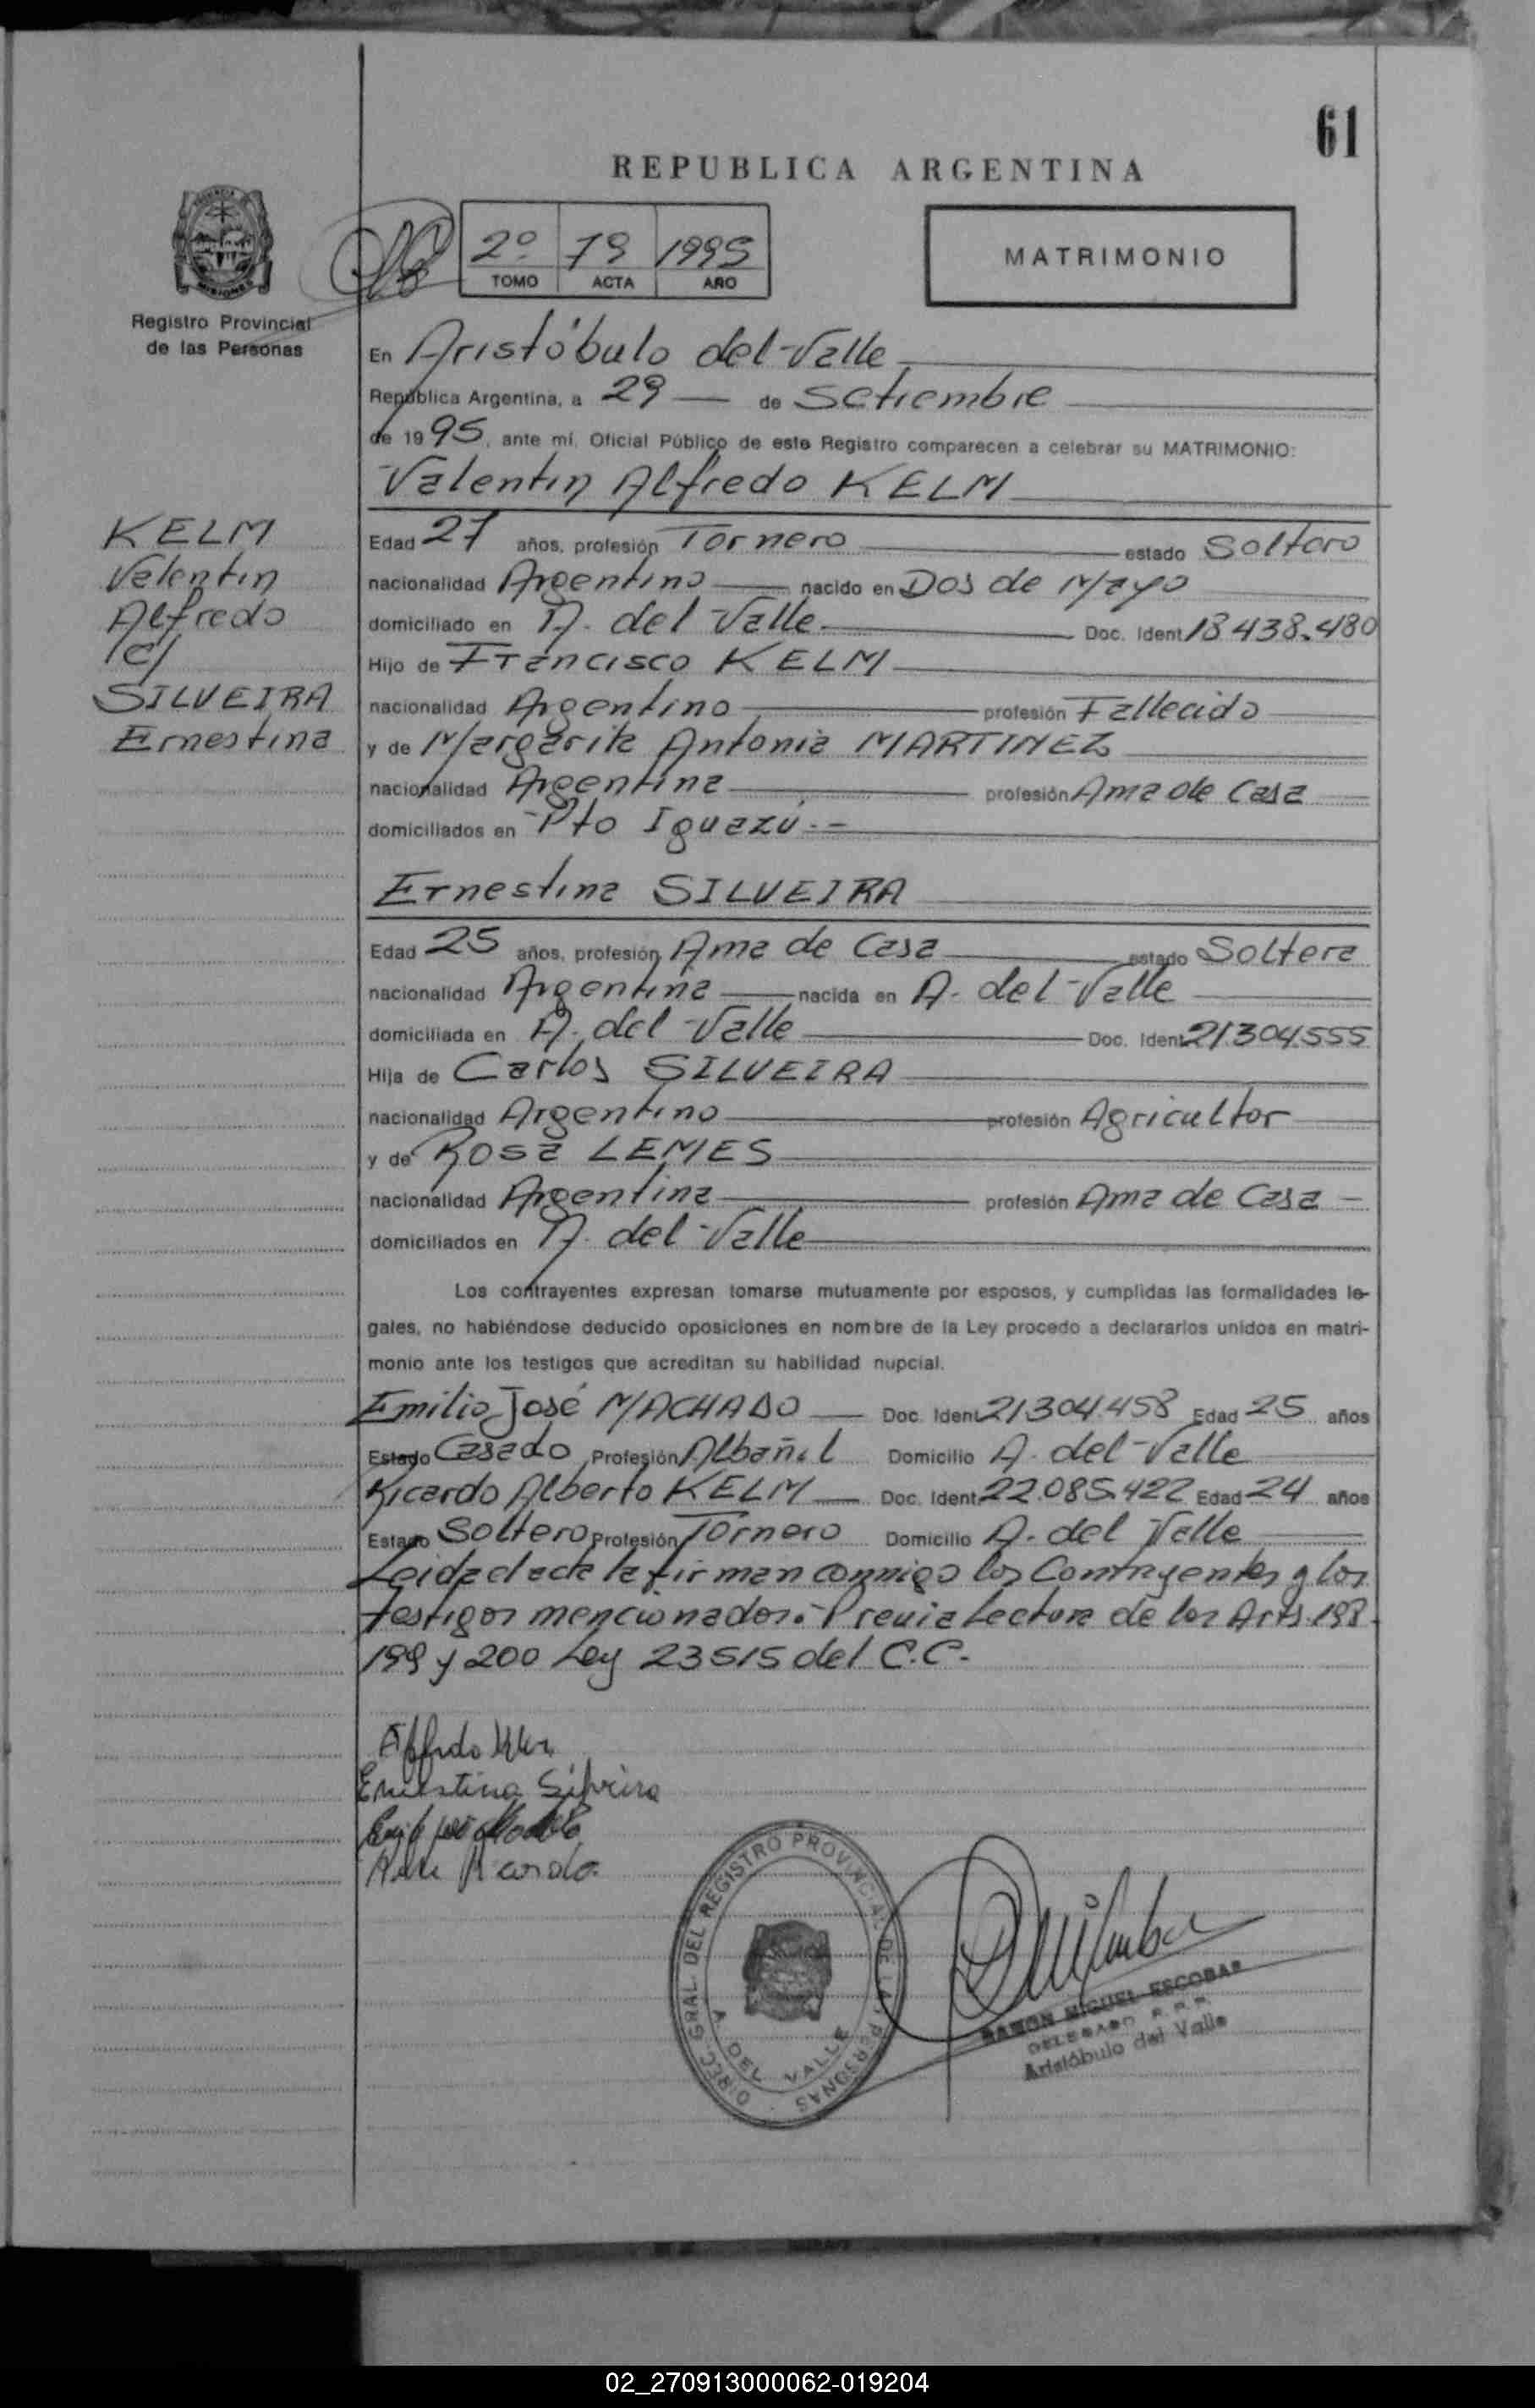 61
REPUBLICA ARGENTINA
2º 79 1995
TOMO ACTA AÑO
MATRIMONIO
PROVINCIA
MISIONES
Registro Provincial
de las Personas
En Aristóbulo del Valle
República Argentina, a 29 de Setiembre
de 1995, ante mí, Oficial Público de este Registro comparecen a celebrar su MATRIMONIO:
Valentin Alfredo KELM
KELM
Valentin
Alfredo
c/
SILVEIRA
Ernestina
Edad 27 años, profesión Tornero estado Soltero
nacionalidad Argentino nacido en Dos de Mayo
domiciliado en A. del Valle Doc. Ident. 18.438.480
Hijo de Francisco KELM
nacionalidad Argentino profesión Fallecido
y de Margarita Antonia MARTINEZ
nacionalidad Argentina profesión Ama de Casa
domiciliados en Pto Iguazú.-
Ernestina SILVEIRA
Edad 25 años, profesión Ama de Casa estado Soltera
nacionalidad Argentina nacida en A. del Valle
domiciliada en A. del Valle Doc. Ident. 21.304.555
Hija de Carlos SILVEIRA
nacionalidad Argentino profesión Agricultor
y de Rosa LEMES
nacionalidad Argentina profesión Ama de Casa
domiciliados en A. del Valle
Los contrayentes expresan tomarse mutuamente por esposos, y cumplidas las formalidades le-
gales, no habiéndose deducido oposiciones en nombre de la Ley procedo a declararlos unidos en matri-
monio ante los testigos que acreditan su habilidad nupcial.
Emilio José MACHADO Doc. Ident. 21.304.458 Edad 25 años
Estado Casado Profesión Albañil Domicilio A. del Valle
Ricardo Alberto KELM Doc. Ident. 22.085.422 Edad 24 años
Estado Soltero Profesión Tornero Domicilio A. del Valle
Leida el acta la firman conmigo los Contrayentes y los
testigos mencionados.- Previa Lectura de los Arts. 198-
199 y 200 Ley 23515 del C.C.-
Ernestina Silveira
DIREC. GRAL. DEL REGISTRO PROVINCIAL DE LAS PERSONAS
A. DEL VALLE
RAMON MIGUEL ESCOBAR
DELEGADO R.P.P.
Aristóbulo del Valle
02_270913000062-019204